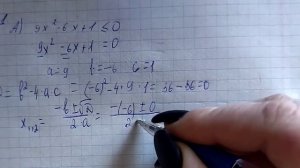 А) 9x² - 6x + 1 ≤ 0
9x² - 6x + 1 = 0
a = 9 b = -6 C = 1
D = b² - 4·a·c = (-6)² - 4·9·1 = 36 - 36 = 0
x₁,₂ = (-b ± √D) / (2·a) = (-(-6) ± 0) / 2